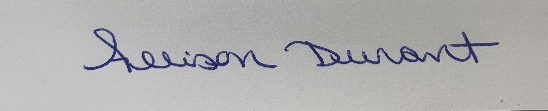 Allison Durant